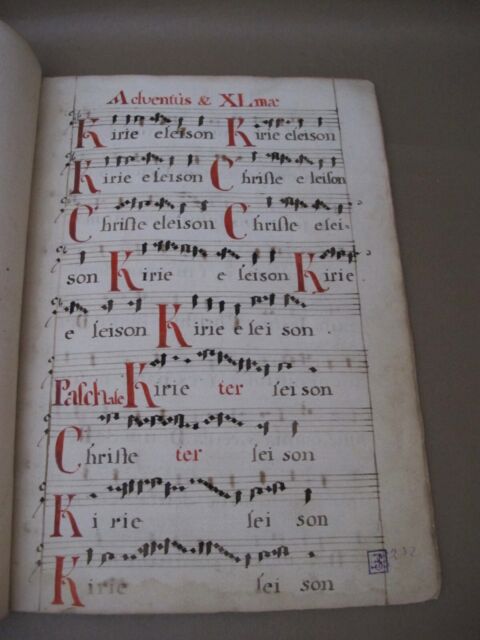 Adventûs & XLmæ
Kirie eleison Kirie eleison
Kirie eleison Christe eleison
Christe eleison Christe elei-
son Kirie eleison Kirie
eleison Kirie eleison
Paschale Kirie ter leison
Christe ter leison
Kirie leison
Kirie leison